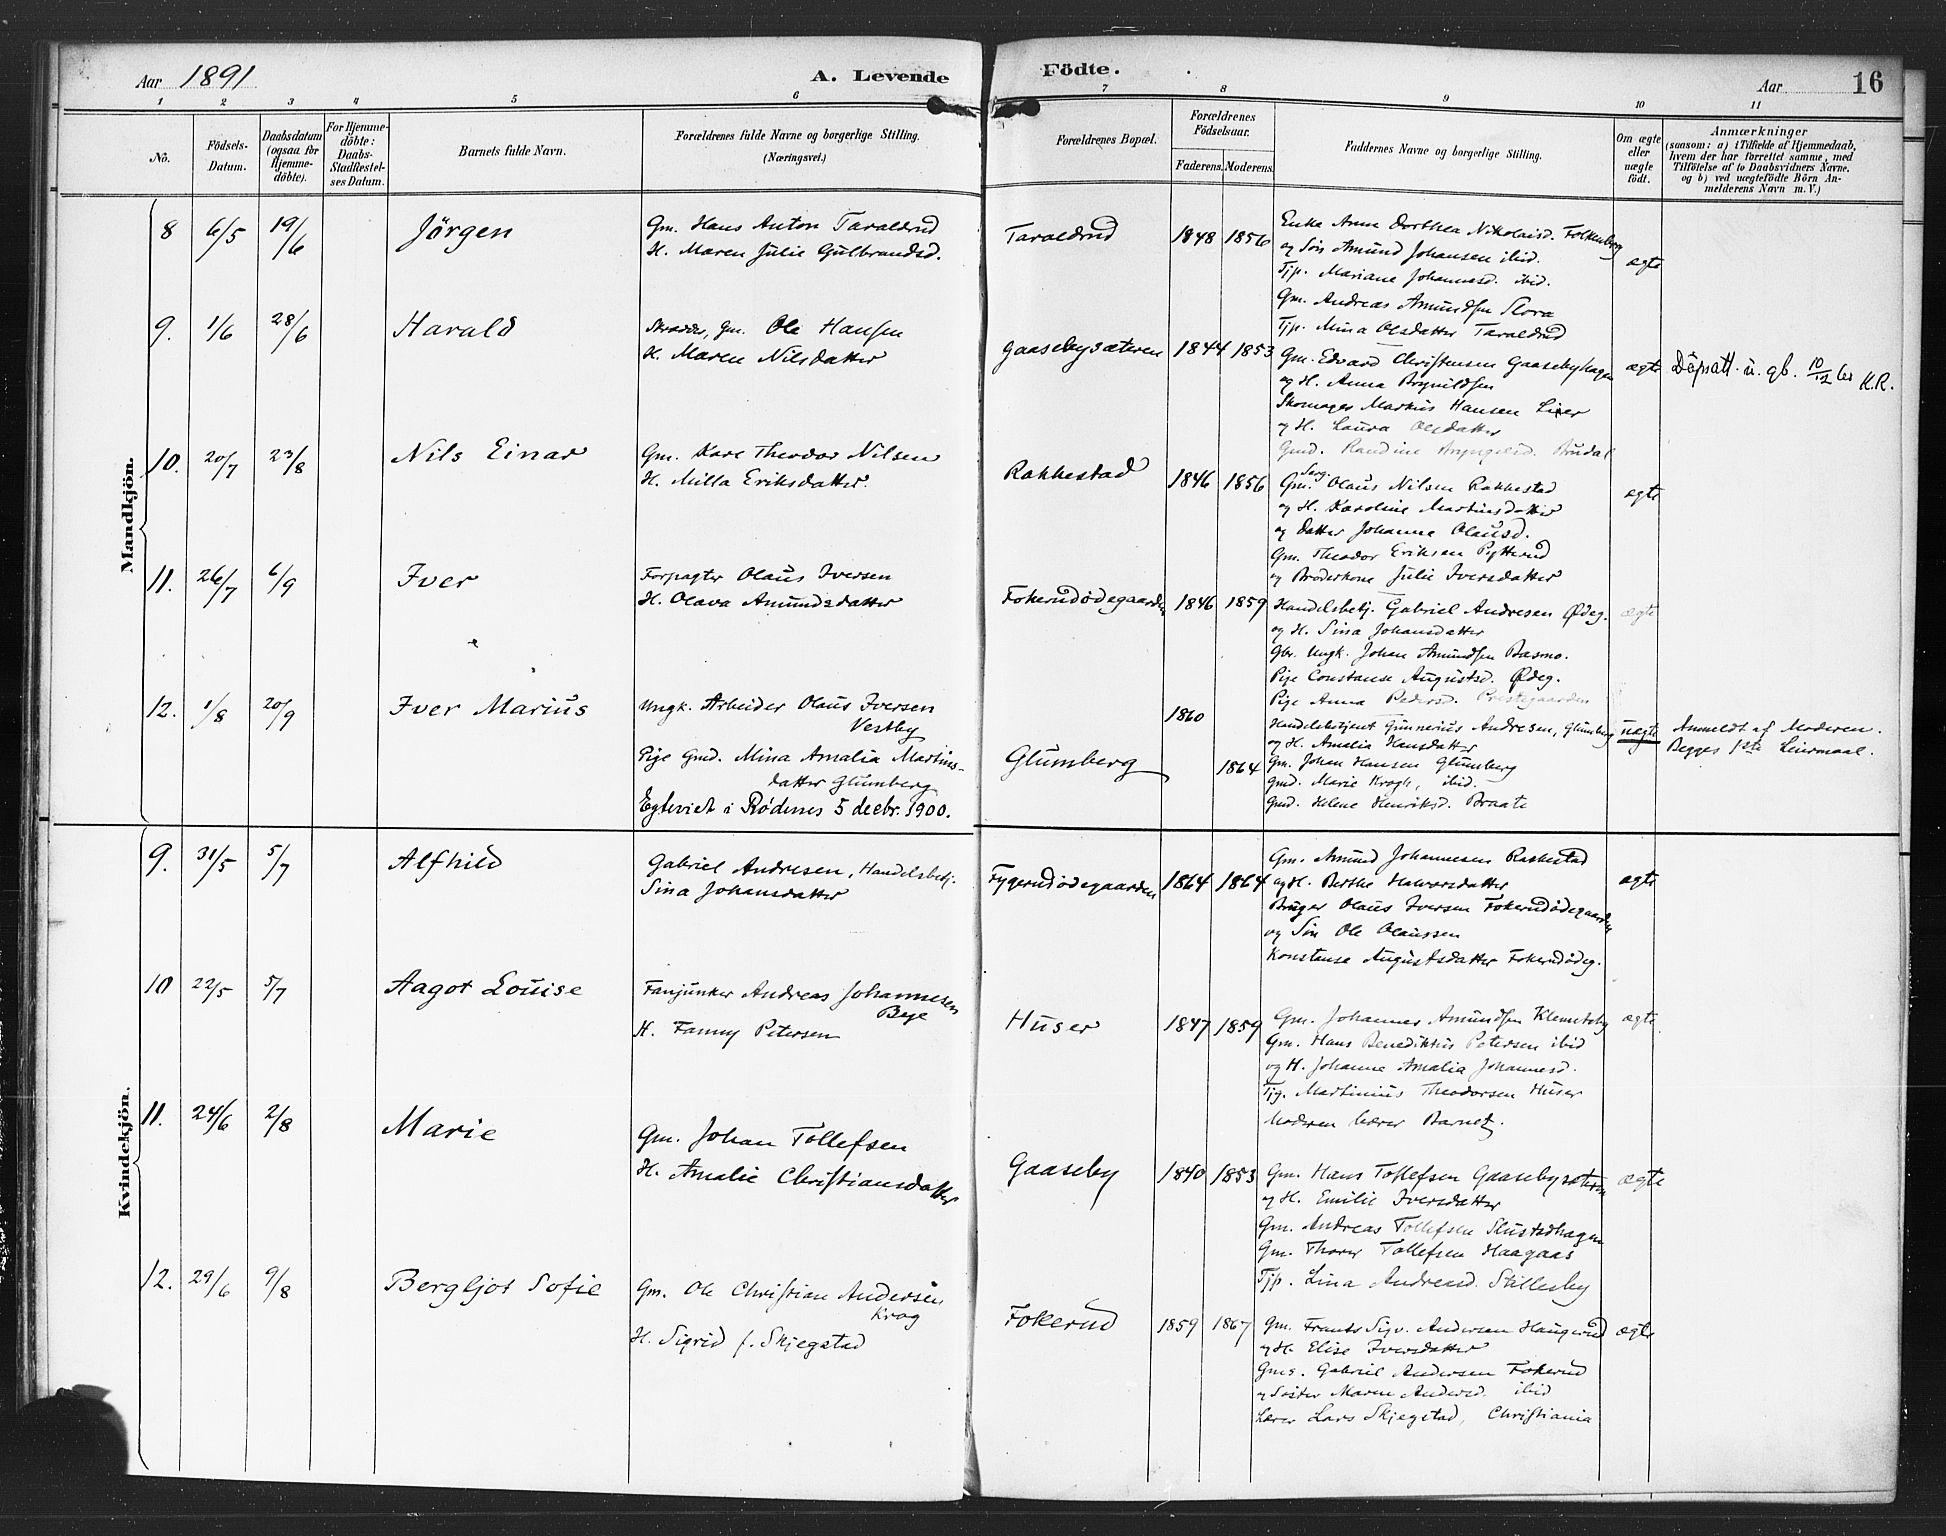 Aar 1891 A. Levende Födte. Aar 16
1 2 3 4 5 6 7 8 8 9 10 11
No. Födsels-Datum. Daabsdatum (ogsaa for Hjemme-döbte). For Hjemme-döbte: Daabs-Stadfestel-ses Datum. Barnets fulde Navn. Forældrenes fulde Navne og borgerlige Stilling. (Næringsvei.) Forældrenes Bopæl. Forældrenes Födselsaar. Faderens. Moderens. Faddernes Navne og borgerlige Stilling. Om ægte eller uægte födt. Anmærkninger (saasom: a) i Tilfælde af Hjemmedaab, hvem der har forrettet samme, med Tilföielse af to Daabsvidners Navne. og b) ved uægtefödte Börn An-melderens Navn m. V.)
Mandkjön.
8 6/5 19/6 Jörgen Gm. Hans Anton Taraldrud
H. Maren Julie Gulbrandsd.
Taraldrud 1848 1856
Enke Anne Dorthea Nikolaisd. Folkenborg
og Sön Amund Johansen ibid.
Tjp. Mariane Johannesd. ibid.
Gm. Andreas Amundsen Slora
Tjp. Mina Olsdatter Taraldrud
ægte
9. 1/6 28/6 Harald Skrædder, Gm. Ole Hansen
H. Maren Nilsdatter
Gaasebysæteren 1844 1853
Gm. Edvard Christensen Gaasebyhagen
og H. Anna Brynildsen
Skomager Markus Hansen Lier
og H. Laura Olsdatter
Gmd. Randine Brynildsd. Brudal
ægte
Döpsatt. u. gb. 10/12 K.R.
10. 20/7 23/8 Nils Einar Gm. Karl Theodor Nilsen
H. Milla Eriksdatter.
Rakkestad 1846 1856
Gm. Serg. Olaus Nilsen Rakkestad
og H. Karoline Martinsdatter
og Datter Johanne Olausd.
Gm. Theodor Eriksen Pytterud
og Broderkone Julie Iversdatter
ægte
11. 26/7 6/9 Iver Forpagter Olaus Iversen
H. Olava Amundsdatter
Fokerudödegaarden 1846 1859
Handelsbetj. Gabriel Andresen Ødeg.
og H. Sina Johansdatter
Gbr. Ungk. Johan Amundsen Basmo.
Pige Constanse Augustsd. Ødeg.
Pige Anna Pedersd. Prestegaarden
ægte
12. 1/8 20/9 Iver Marius Ungk. Arbeider Olaus Iversen
Vestby
Pige Gmd. Mina Amalia Martins-
datter Glumberg
Egteviet i Rødenes 5 decbr. 1900.
Glumberg 1860 1864
Handelsbetjent Gunnerius Andresen, Glumberg
og H. Amalia Hansdatter
Gm. Johan Hansen Glumberg
Gmd. Marie Krogh, ibid.
Gmd. Helene Henriksd. Braate
uægte
Anmeldt af Moderen.
Begges 1ste Leiermaal.
Kvindekjön.
9. 31/5 5/7 Alfhild Gabriel Andresen, Handelsbetj.
Sina Johansdatter
Fygerudödegaarden 1864 1864
Gm. Amund Johannesen Rakkestad
og H. Berthe Halvorsdatter
Bruger Olaus Iversen Fokerudödegaarden
og Sön Ole Olaussen
Konstanse Augustsdatter Fokerudödeg.
ægte
10 22/5 5/7 Aagot Louise Fanjunker Andreas Johannesen
Beye
H. Fanny Petersen
Huser 1847 1859
Gm. Johannes Amundsen Klemetsby
Gm. Hans Benediktus Petersen ibid
og H. Johanne Amalia Johannesd.
Tjg. Martinius Theodorsen Huser
Moderen bærer Barnet.
ægte
11. 24/6 2/8 Marie Gm. Johan Tollefsen
H. Amalie Christiansdatter
Gaaseby 1840 1853
Gm. Hans Tollefsen Gaasebysæteren
og H. Emilie Iversdatter
Gm. Andreas Tollefsen Slustadhagen
Gm. Thorer Tollefsen Haagaas
Tjp. Lina Andreasd. Stillesby
ægte
12. 29/6 9/8 Bergljot Sofie Gm. Ole Christian Andersen
Krog
H. Sigrid f. Skjegstad
Fokerud 1859 1867
Gm. Frants Sigv. Andersen Haugerud
og H. Elise Iversdatter
Gms. Gabriel Andersen Fokerud
og Söster Maren Andersd. ibid
Lærer Lars Skjegstad, Christiania
ægte